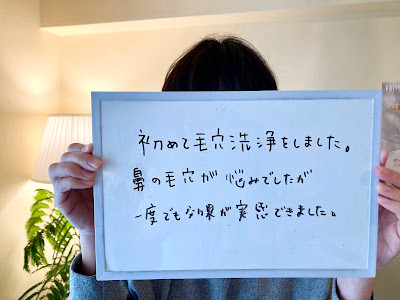 初めて毛穴洗浄をしました。
鼻の毛穴が悩みでしたが
一度でも効果が実感できました。